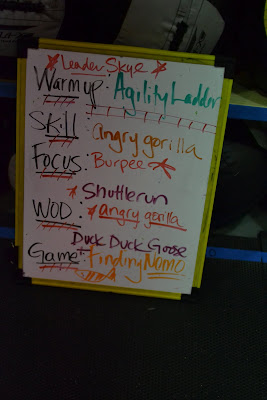 Leader Skye
Warm up: Agility Ladder
Skill: angry gorilla
Focus: Burpee
Shuttlerun
WOD: angry gorilla
Duck Duck Goose
Game: Finding Nomo